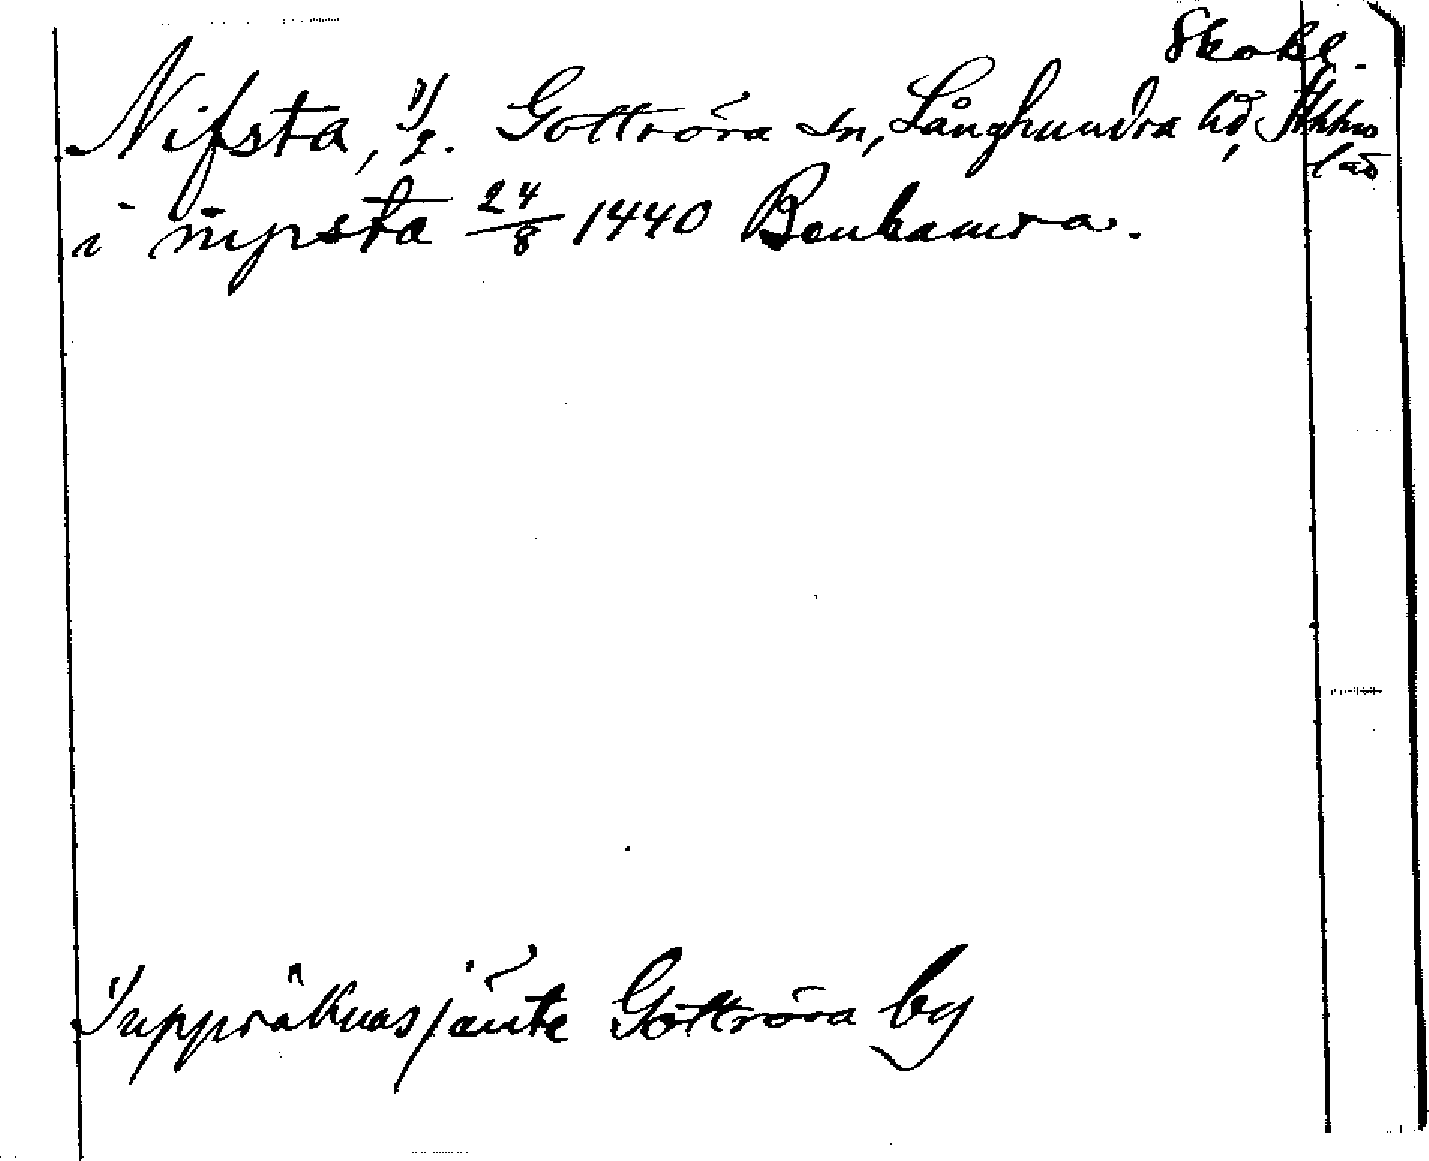 Skokl.
Nifsta, 1/ g. Gottröra sn, Långhundra hd, Sthlms
län
i nipsta 24/8 1440 Benhamra.
1/ uppräknas jämte Gottröra by